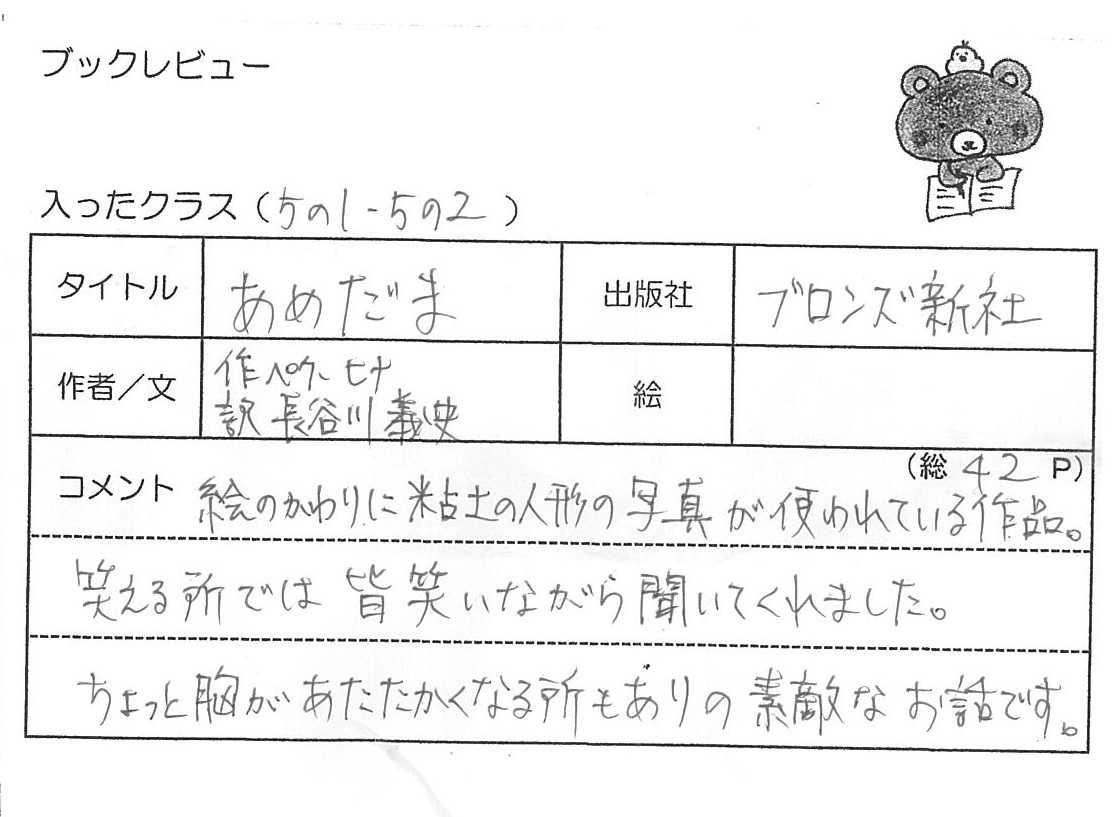 ブックレビュー
入ったクラス（5の1-5の2）
タイトル あめだま 出版社 ブロンズ新社
作者／文 作 ペク・ヒナ 絵
訳 長谷川義史
（総 42 P）
コメント 絵のかわりに粘土の人形の写真が使われている作品。
笑える所では皆笑いながら聞いてくれました。
ちょっと胸があたたかくなる所もありの素敵なお話です。